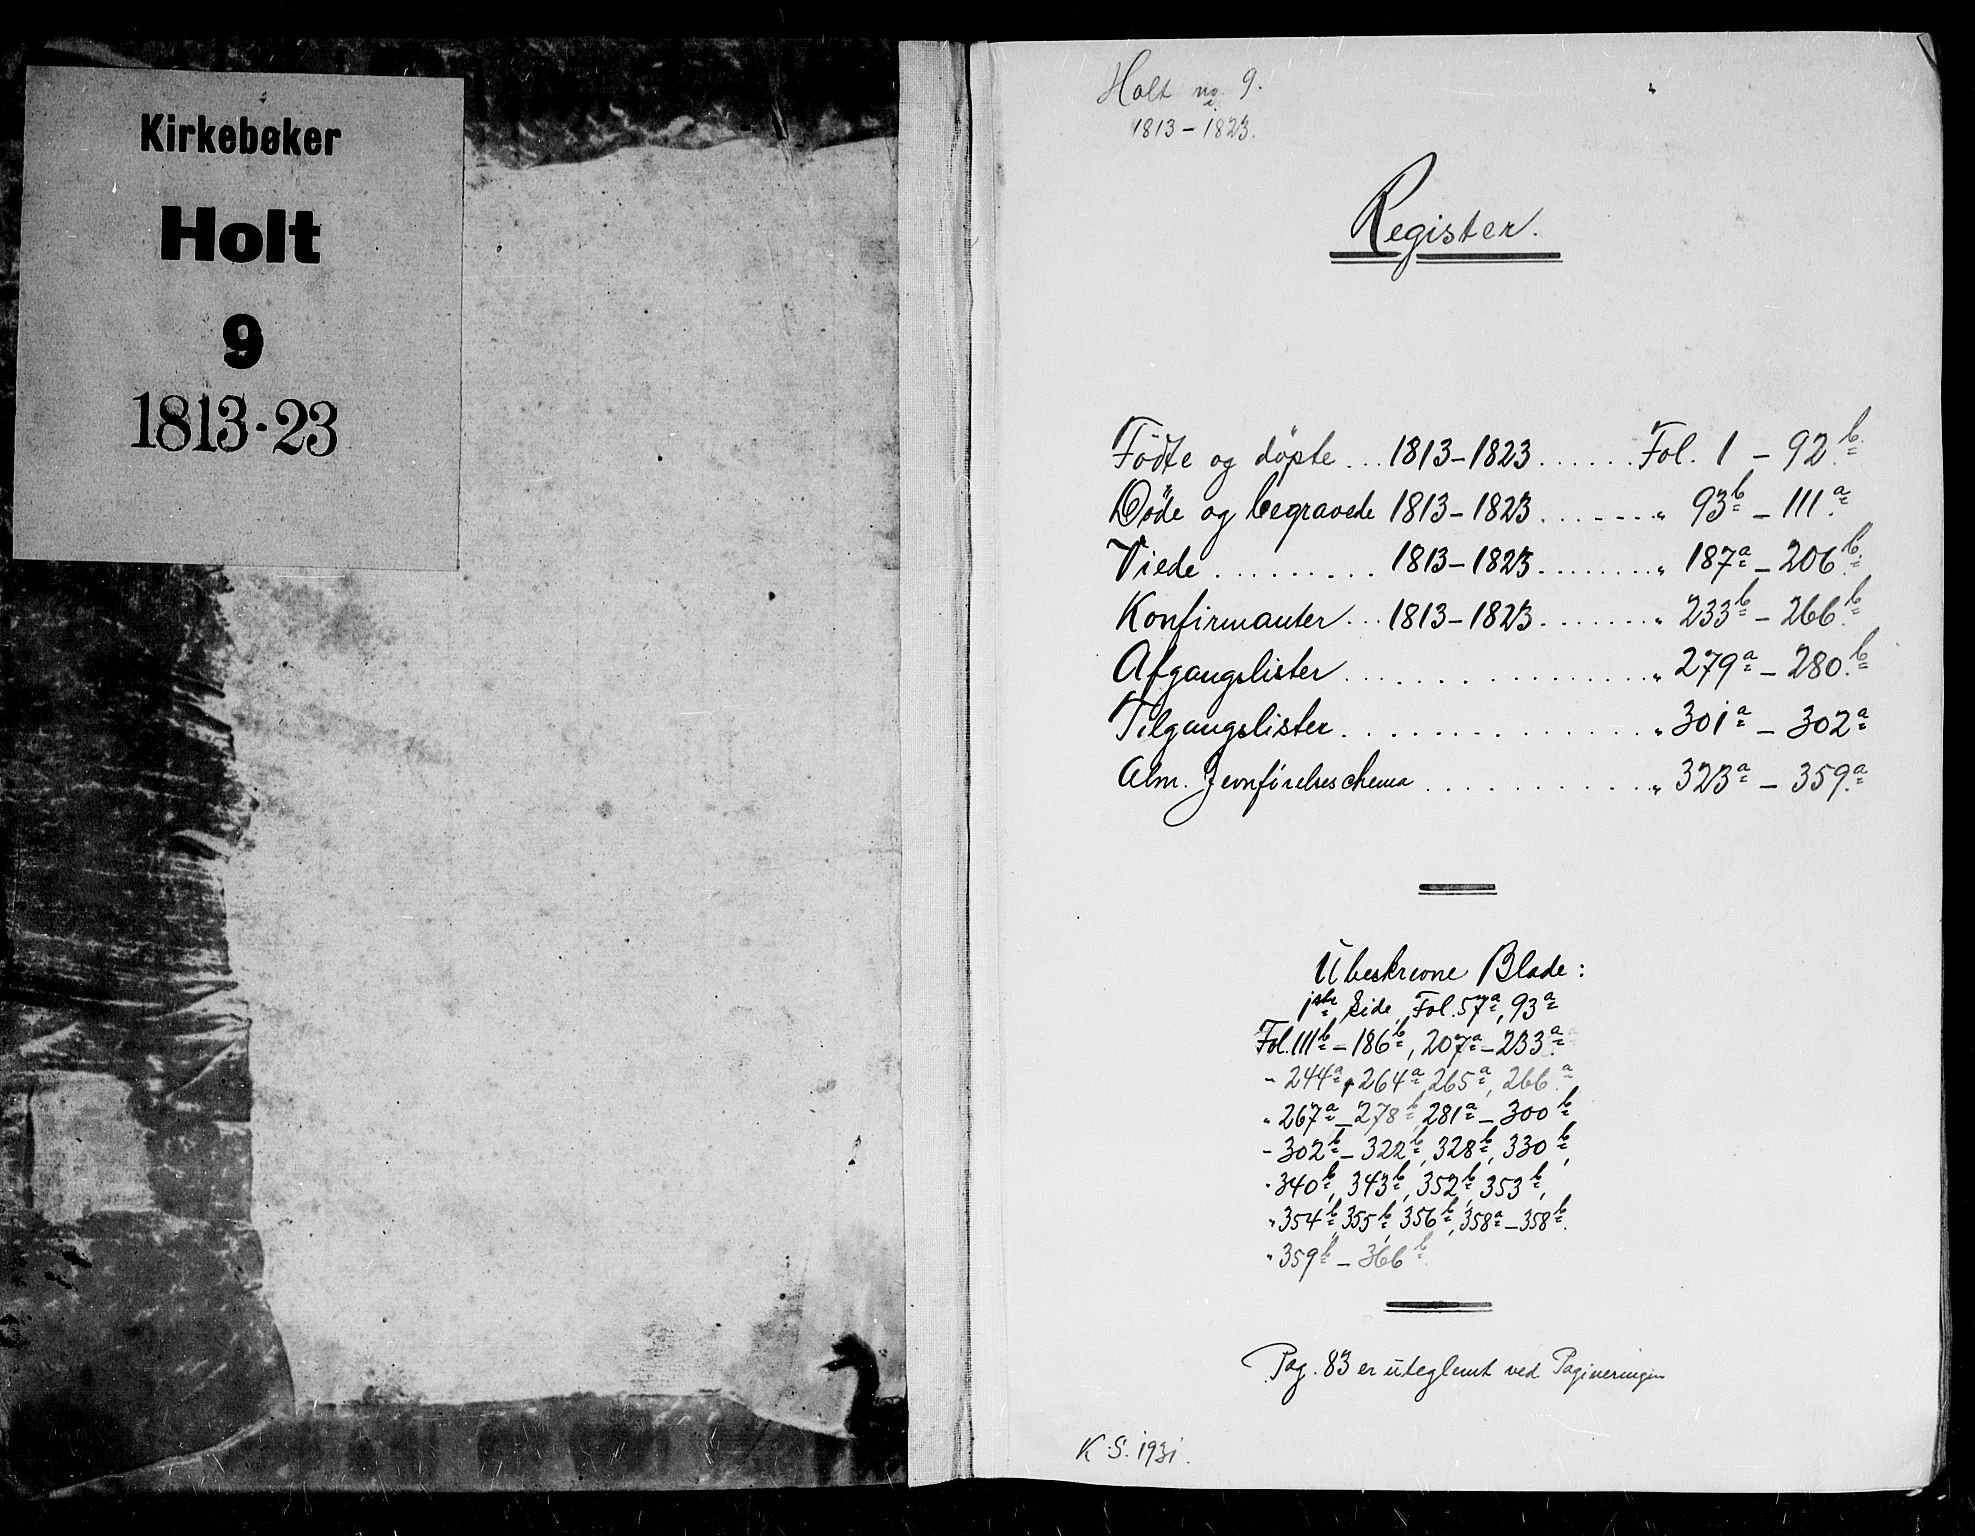 Kirkebøker
Holt
9
1813-23
Holt no. 9.
1813-1823.
Register.
Fødte og døpte ... 1813-1823 ...... Fol. 1 - 92b.
Døde og begravede 1813-1823 ....... " 93b - 111a
Viede ......... 1813-1823 ........ " 187a - 206b.
Konfirmanter ... 1813-1823 ....... " 233b - 266b.
Afgangslister ................ " 279a - 280.b
Tilgangslister ............... " 301a - 302a
Alm. Jevnførelseschema ............ " 323a - 359.a
Ubeskrevne Blade:
1ste Side, Fol. 57a, 93a
Fol. 111b - 186b, 207a - 233a.
" 244a, 264a, 265a, 266.a
" 267a - 278b, 281a - 300b
" 302b - 322b, 328b, 330b,
" 340b, 343b, 352b, 353b,
" 354b, 355b, 356b, 358a - 358b.
" 359b - 366b.
Pag. 83 er uteglemt ved Pagineringen
K.S. 1931.